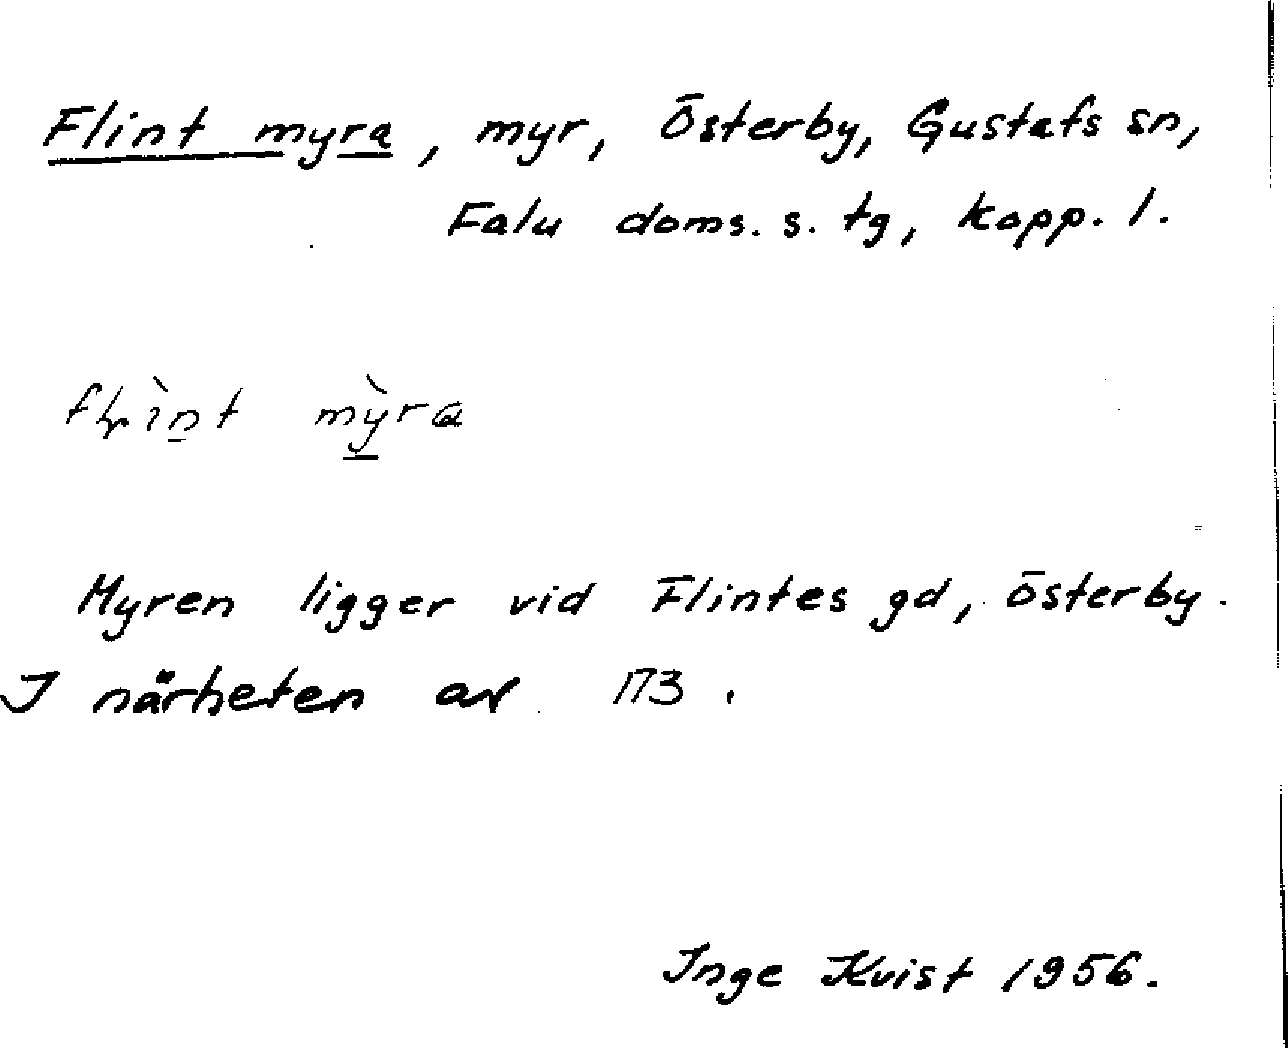 Flint myra, myr, Österby, Gustafs sn,
Falu doms. s. tg, Kopp. l.
myra
Myren ligger vid Flintes gd, Österby.
I närheten av 173.
Inge Kvist 1956.